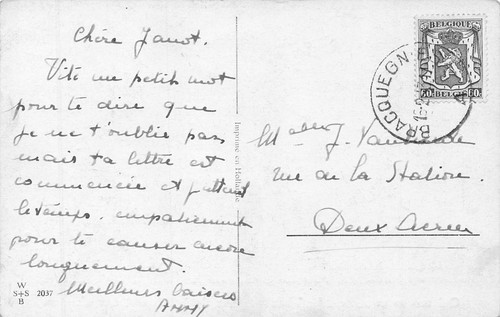 Chère Janot.
Vite un petit mot
pour te dire que
je ne t'oublie pas
mais ta lettre est
commencée et j'attend
le temps, impatiemment
pour te causer encore
longuement.
Meilleurs baisers
ANNY
W
S+S 2037
B
Imprimé en Hollande
BELGIQUE
60 60
BELGIE
BRACQUEGN
J.
rue de la Station.
Deux Acren